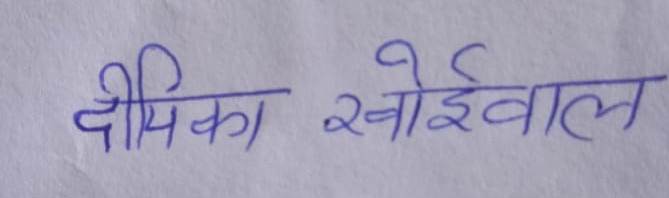 दीपिका खोईवाल